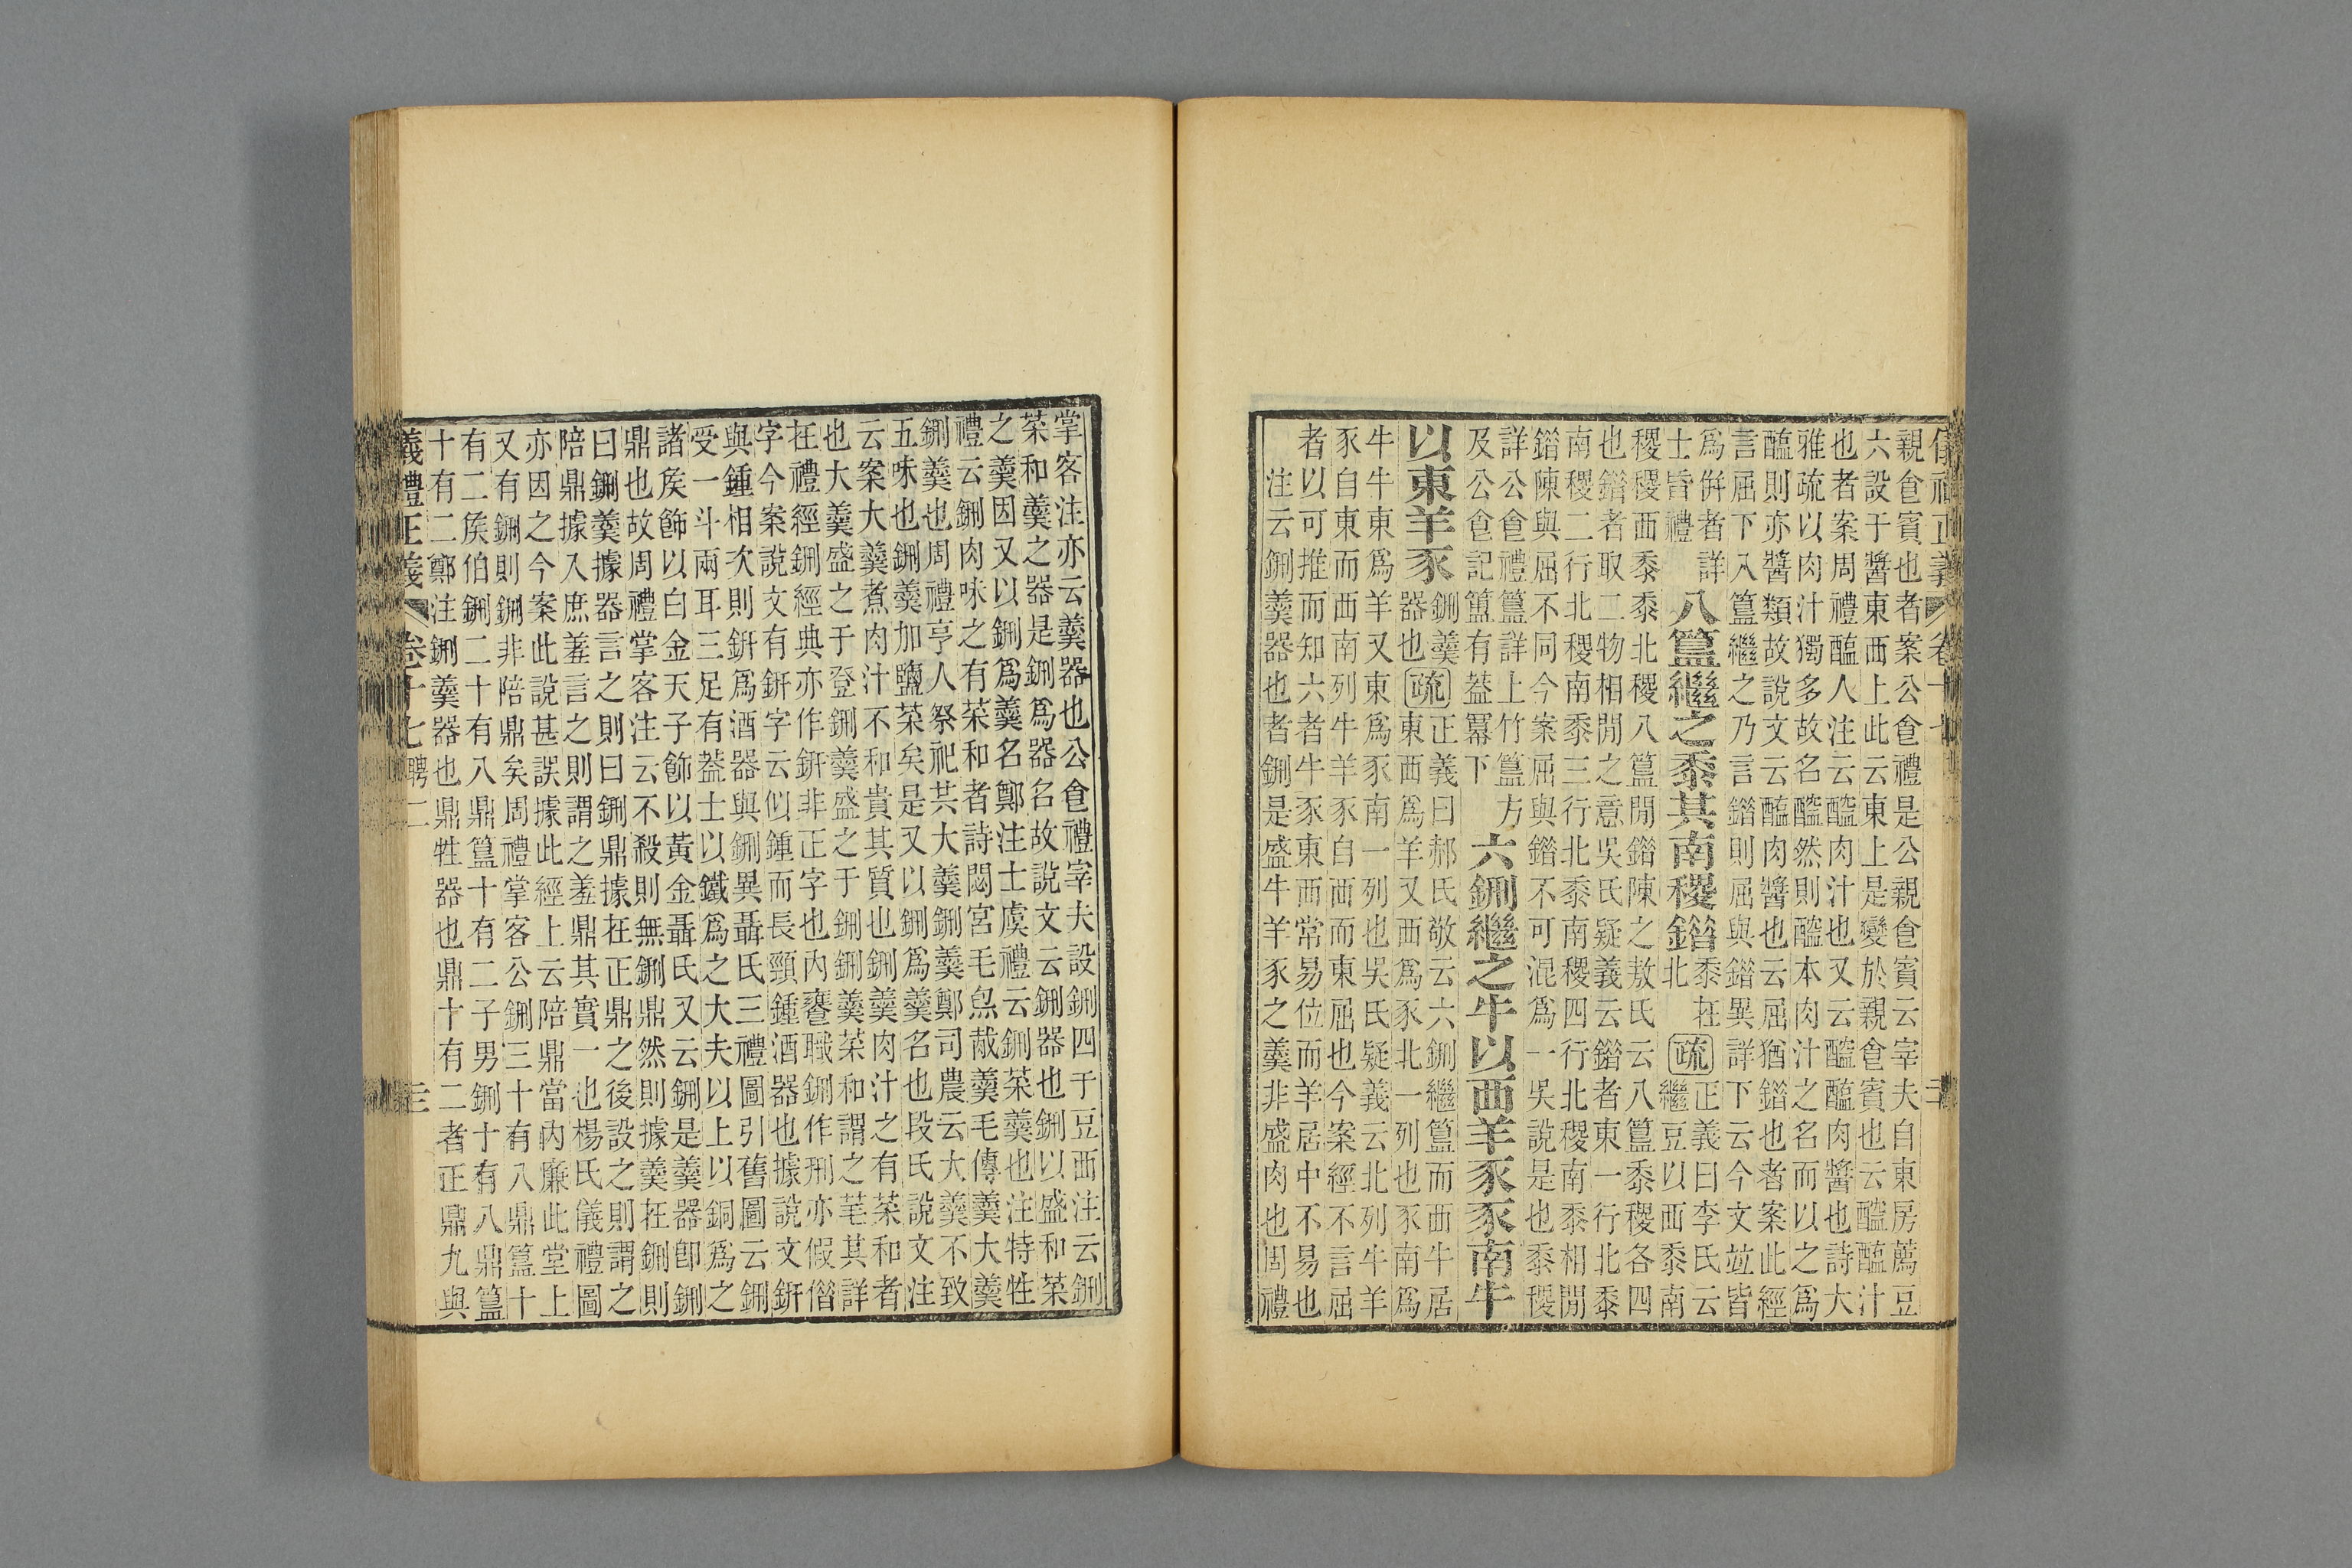 儀禮正義 卷十七
親食賓也者案公食禮是公親食賓云宰夫自東房薦豆
六設于醬東西上此云東上是變於親食賓也云醓醢汁
也者案周禮醢人注云醓肉汁也又云醓醢肉醬也詩大
雅疏以肉汁獨多故名醓然則醓本肉汁之名而以之爲
醢則亦醬類故說文云醢肉醬也云屈猶錯也者案此經
言屈下八簋繼之乃言錯則屈與錯異詳下云今文竝皆
爲併者詳
士昏禮
八簋繼之黍其南稷錯
黍在
北
疏
正義曰李氏云
繼豆以西黍南
稷稷西黍黍北稷八簋閒錯陳之敖氏云八簋黍稷各四
也錯者取二物相閒之意吳氏疑義云錯者東一行北黍
南稷二行北稷南黍三行北黍南稷四行北稷南黍相閒
錯陳與屈不同今案屈與錯不可混爲一吳說是也黍稷
詳公食禮簋詳上竹簋方
及公食記簠有蓋冪下
六鉶繼之牛以西羊豕豕南牛
以東羊豕
鉶羹
器也
疏
正義曰郝氏敬云六鉶繼簋而西牛居
東西爲羊又西爲豕北一列也豕南爲
牛牛東爲羊又東爲豕南一列也吳氏疑義云北列牛羊
豕自東而西南列牛羊豕自西而東屈也今案經不言屈
者以可推而知六者牛豕東西常易位而羊居中不易也
注云鉶羹器也者鉶是盛牛羊豕之羹非盛肉也周禮
掌客注亦云羹器也公食禮宰夫設鉶四于豆西注云鉶
菜和羹之器是鉶爲器名故說文云鉶器也鉶以盛和菜
之羹因又以鉶爲羹名鄭注士虞禮云鉶菜羹也注特牲
禮云鉶肉味之有菜和者詩閟宮毛炰胾羹毛傳羹大羹
鉶羹也周禮亨人祭祀共大羹鉶羹鄭司農云大羹不致
五味也鉶羹加鹽菜矣是又以鉶爲羹名也段氏說文注
云案大羹煮肉汁不和貴其質也鉶羹肉汁之有菜和者
也大羹盛之于登鉶羹盛之于鉶鉶羹菜和謂之芼其詳
在禮經鉶經典亦作鈃非正字也內饔職鉶作刑亦假借
字今案說文有鈃字云似鍾而長頸鍾酒器也據說文鈃
與鍾相次則鈃爲酒器與鉶異聶氏三禮圖引舊圖云鉶
受一斗兩耳三足有蓋士以鐵爲之大夫以上以銅爲之
諸侯飾以白金天子飾以黃金聶氏又云鉶是羹器卽鉶
鼎也故周禮掌客注云不殺則無鉶鼎然則據羹在鉶則
曰鉶羹據器言之則曰鉶鼎據在正鼎之後設之則謂之
陪鼎據入庶羞言之則謂之羞鼎其實一也楊氏儀禮圖
亦因之今案此說甚誤據此經上云陪鼎當內廉此堂上
又有鉶則鉶非陪鼎矣周禮掌客公鉶三十有八鼎簋十
有二侯伯鉶二十有八鼎簋十有二子男鉶十有八鼎簋
十有二鄭注鉶羹器也鼎牲器也鼎十有二者正鼎九與
儀禮正義 卷十七 聘二